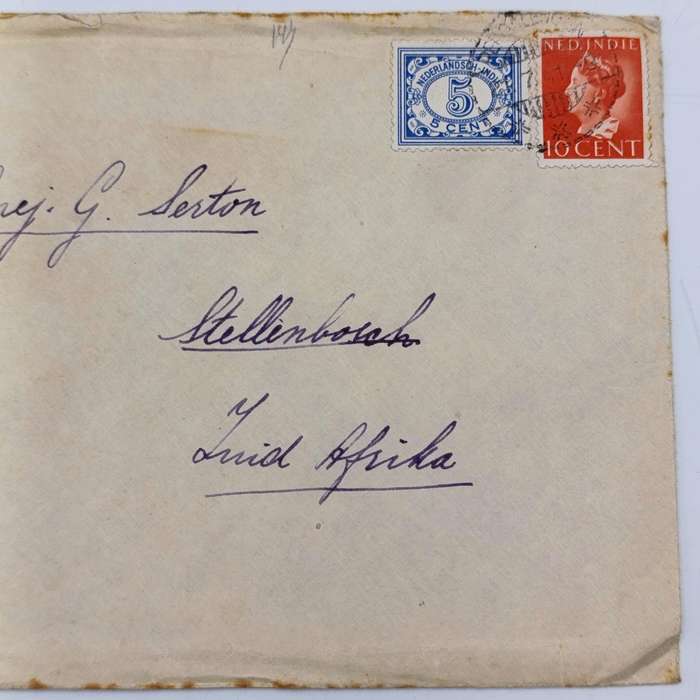 NEDERLANDSCH-INDIË
5
5 CENT
NED. INDIE
10 CENT
G. Serton
Stellenbosch
Zuid Afrika